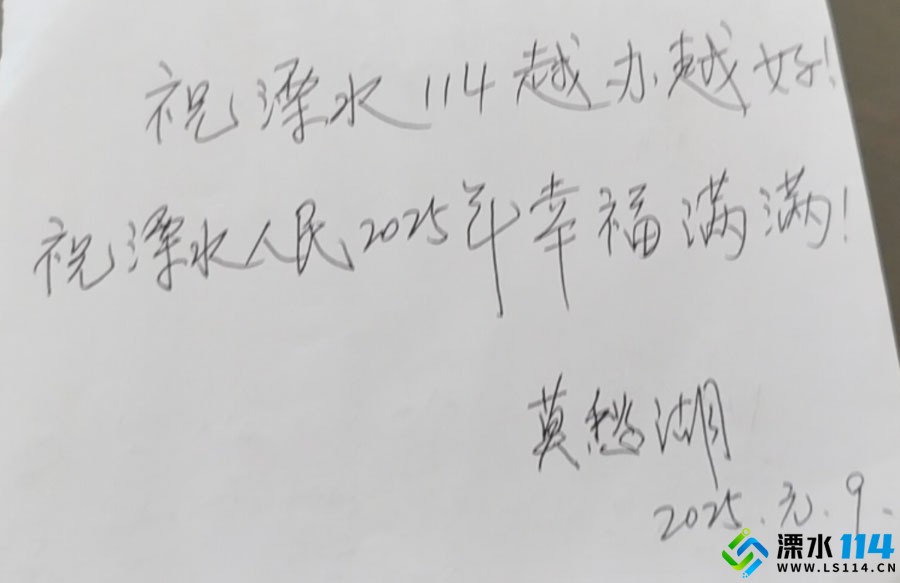 祝溧水114越办越好!
祝溧水人民2025年幸福满满!
莫愁湖
2025.元.9.
溧水114
WWW.LS114.CN